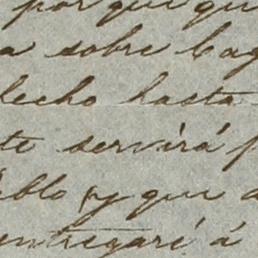 por que qu
a sobre Cag
lecho hasta
te servirá p
blo y que a
entregaré á